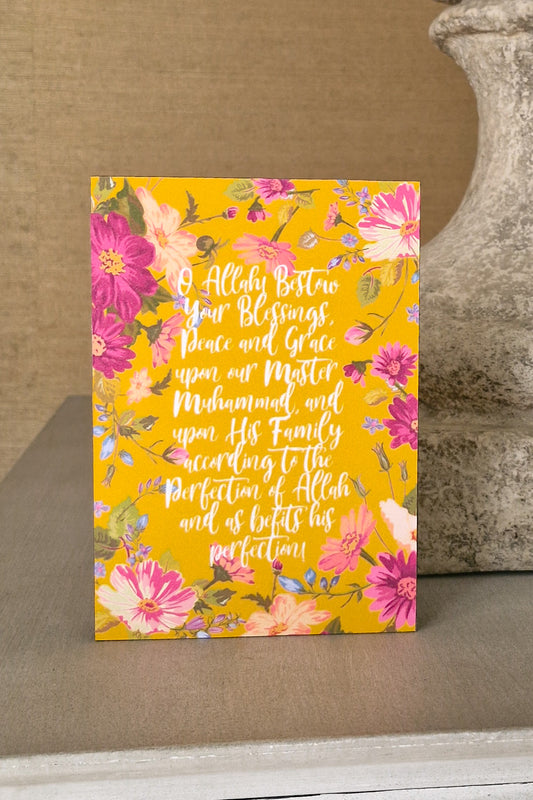 O Allah! Bestow
Your Blessings,
Peace and Grace
upon our Master
Muhammad, and
upon His Family
according to the
Perfection of Allah
and as befits his
perfection!